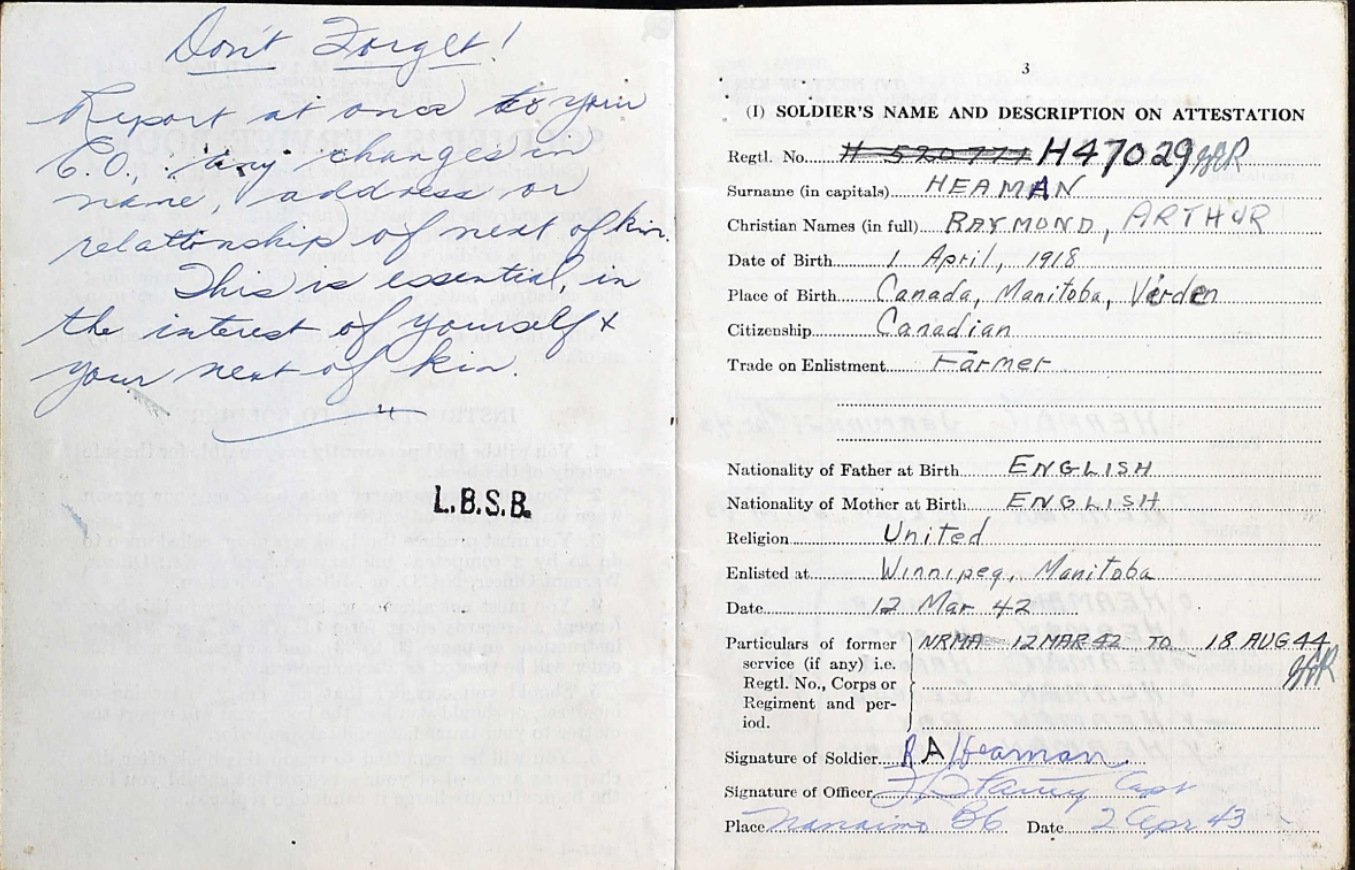 Don't Forget!
Report at once to your
C.O., any changes in
name, address or
relationship of next of kin.
This is essential, in
the interest of yourself &
your next of kin.
L.B.S.B.
3
(I) SOLDIER'S NAME AND DESCRIPTION ON ATTESTATION
Regtl. No. H 520777 H47029
Surname (in capitals) HEAMAN
Christian Names (in full) RAYMOND, ARTHUR
Date of Birth 1 April, 1918
Place of Birth Canada, Manitoba, Verden
Citizenship Canadian
Trade on Enlistment Farmer
Nationality of Father at Birth ENGLISH
Nationality of Mother at Birth ENGLISH
Religion United
Enlisted at Winnipeg, Manitoba
Date 12 Mar 42
Particulars of former NRMA 12 MAR 42 TO 18 AUG 44
service (if any) i.e.
Regtl. No., Corps or
Regiment and per-
iod.
Signature of Soldier R A Heaman
Signature of Officer Capt
Place Nanaimo BC Date 2 Apr 43